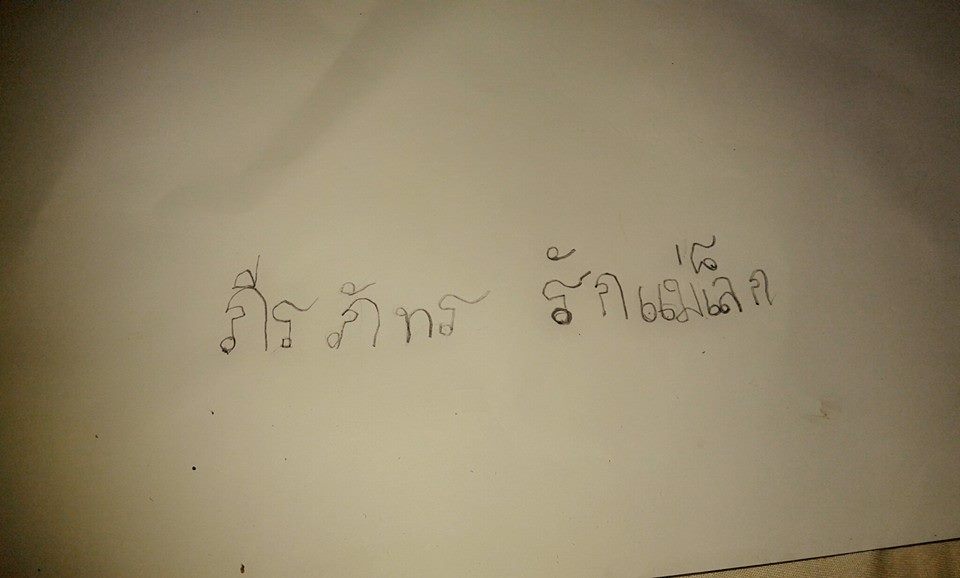 ภีรภัทร รักแม่เล็ก